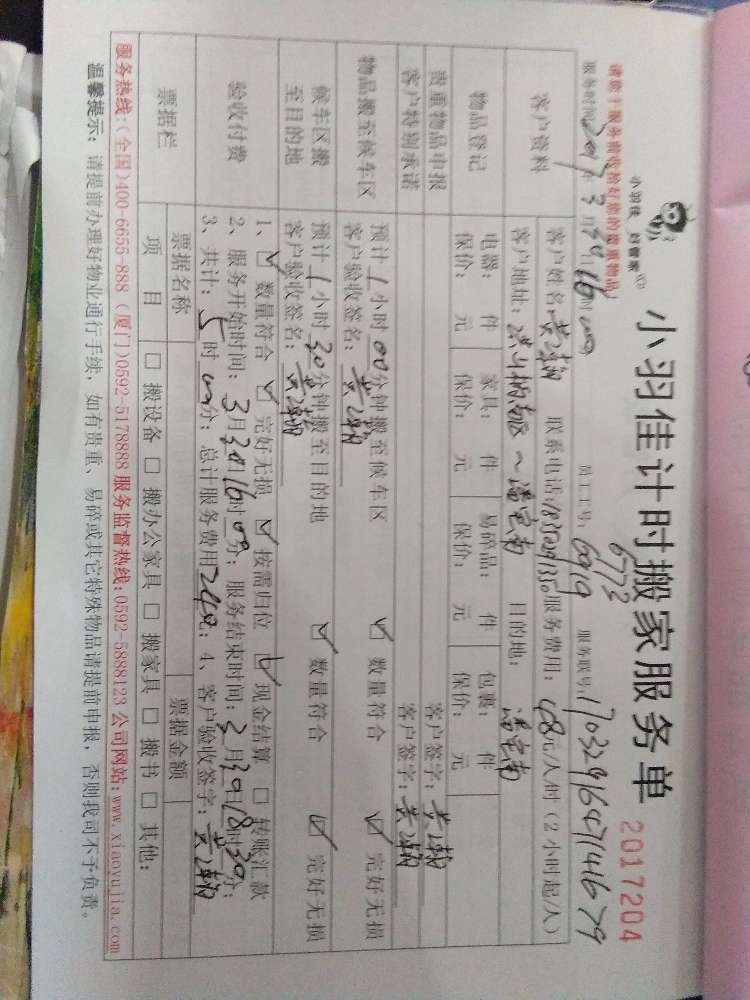 小羽佳 好管家
小羽佳计时搬家服务单
2017204
请您于服务前收拾好您的贵重物品
员工工号: 6773 6919
服务联号: 170329164714679
服务时间 2017年3月30日16时00
客户资料
客户姓名: 联系电话: 服务费用: 48元/人/时(2小时起/人)
客户地址: 目的地:
物品登记
电器: 件 家具: 件 易碎品: 件 包裹: 件
保价: 元 保价: 元 保价: 元 保价: 元
贵重物品申报 客户签字:
客户特别承诺 客户签字:
物品搬至候车区
预计1小时00分钟搬至候车区 ☑ 数量符合 ☑ 完好无损
客户验收签名:
候车区搬至目的地
预计1小时30分钟搬至目的地 ☑ 数量符合 ☑ 完好无损
客户验收签名:
验收付费
1、☑ 数量符合 ☑ 完好无损 ☑ 按需归位 ☑ 现金结算 □ 转账汇款
2、服务开始时间: 3月30日16时00分; 服务结束时间: 3月30日18时30分;
3、共计: 5时00分; 总计服务费用240; 4、客户验收签字:
票据栏
票据名称 票据金额
项目 □ 搬设备 □ 搬办公家具 □ 搬家具 □ 搬书 □ 其他:
服务热线:(全国)400-6655-888 (厦门)0592-5178888 服务监督热线:0592-5888123 公司网站:www.xiaoyujia.com
温馨提示: 请提前办理好物业通行手续, 如有贵重、易碎或其它特殊物品请提前申报, 否则我司不予负责。